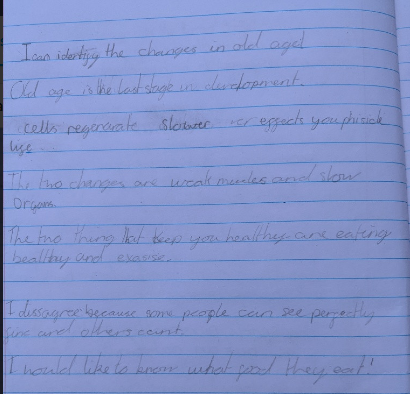 I can identify the changes in old age!
Old age is the last stage in development.
cells regenerate slower it effects you phisicle
life
The two changes are weak muscles and slow
Organs.
The two thing that keep you healthy are eating
healthy and exersise.
I dissagree because some people can see perfectly
fine and others cant.
I would like to know what food they eat!